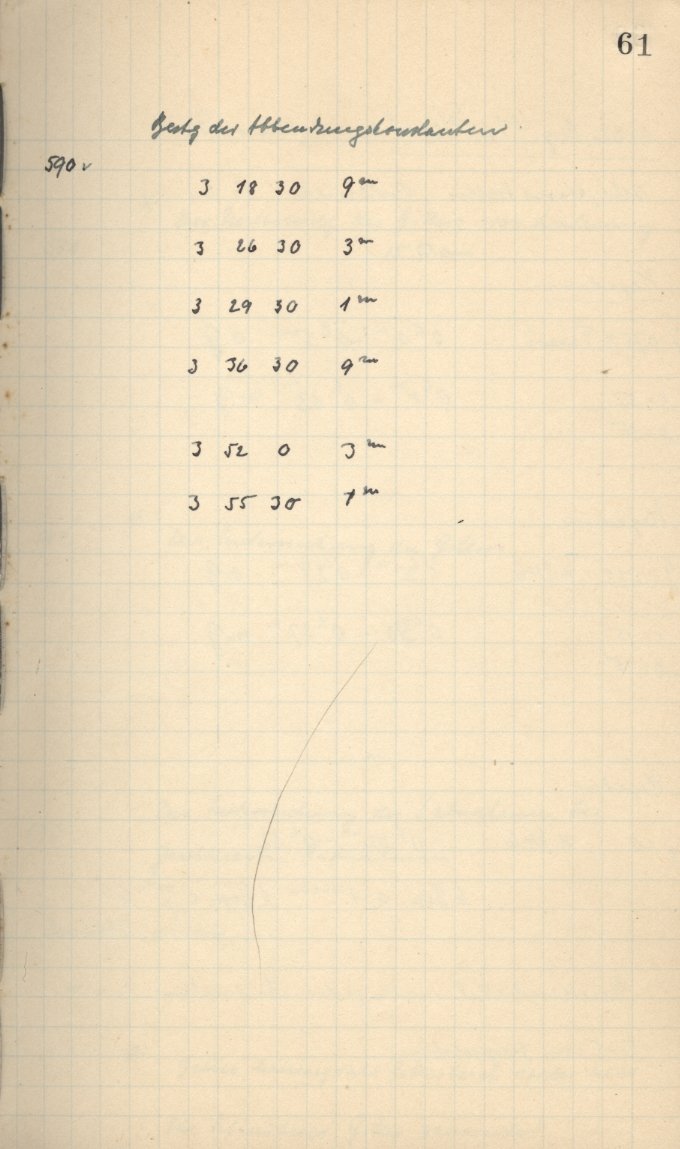 61
Bestg der Abbendungskonstanten
590 v
3 18 30 9 m
3 26 30 3 m
3 29 30 1 m
3 36 30 9 m
3 52 0 3 m
3 55 30 1 m